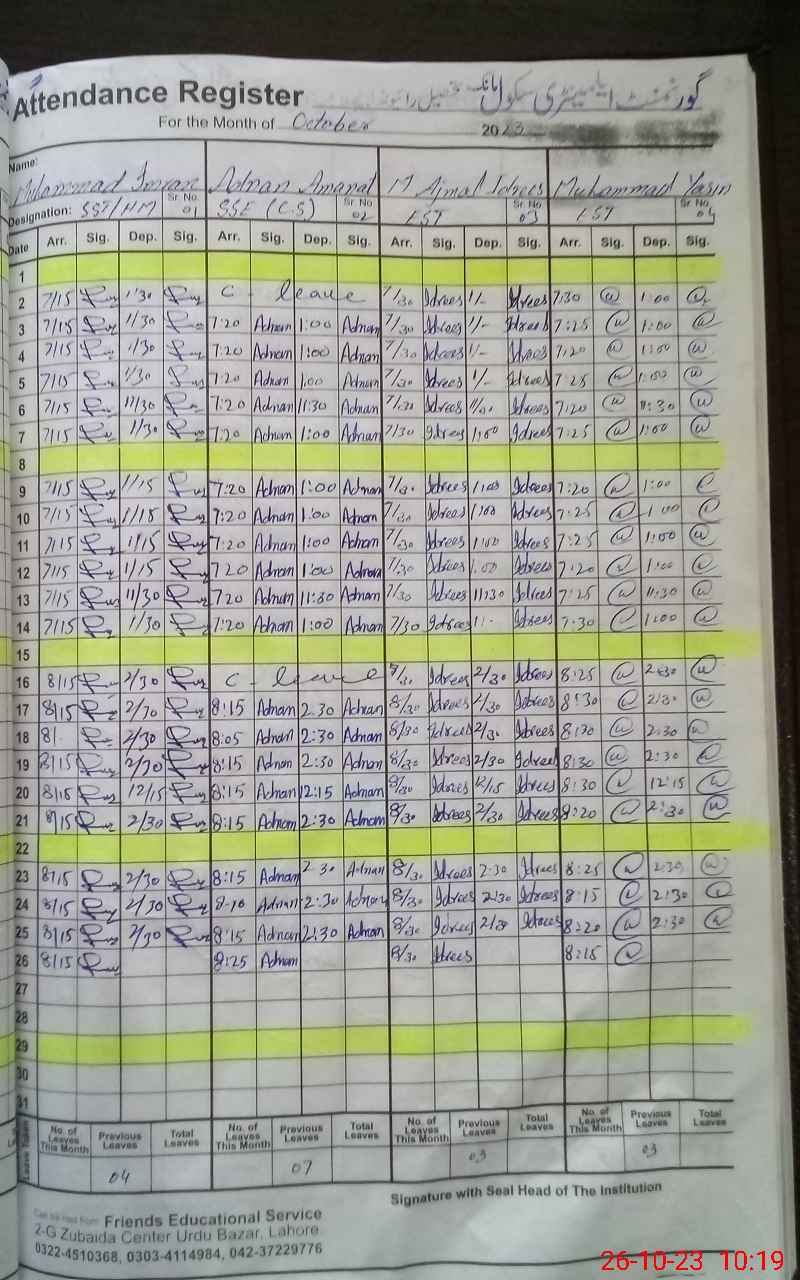 Attendance Register گورنمنٹ ایلیمنٹری سکول مانک تحصیل رائیونڈ
For the Month of October 2023
Name: Muhammad Imran Adnan Amanat M Ajmal Idrees Muhammad Yasin
Designation: SST/HM Sr. No. 01 SSE (C.S) Sr. No. 02 EST Sr. No. 03 EST Sr. No. 04
Date Arr. Sig. Dep. Sig. Arr. Sig. Dep. Sig. Arr. Sig. Dep. Sig. Arr. Sig. Dep. Sig.
1
2 7/15 1/30 C - leave 7/30 Idrees 1/- Idrees 7:30 1:00
3 7/15 1/30 7:20 Adnan 1:00 Adnan 7/30 Idrees 1/- Idrees 7:25 1:00
4 7/15 1/30 7:20 Adnan 1:00 Adnan 7/30 Idrees 1/- Idrees 7:20 1:00
5 7/15 1/30 7:20 Adnan 1:00 Adnan 7/30 Idrees 1/- Idrees 7:25 1:00
6 7/15 11/30 7:20 Adnan 11:30 Adnan 7/30 Idrees Idrees 7:20 11:30
7 7/15 1/30 7:20 Adnan 1:00 Adnan 7/30 Idrees 1:00 Idrees 7:25 1:00
8
9 7/15 1/15 7:20 Adnan 1:00 Adnan Idrees 1:00 Idrees 7:20 1:00
10 7/15 1/15 7:20 Adnan 1:00 Adnan 7/30 Idrees 1:00 Idrees 7:25 1:00
11 7/15 1/15 7:20 Adnan 1:00 Adnan 7/30 Idrees 1:00 Idrees 7:25 1:00
12 7/15 1/15 7:20 Adnan 1:00 Adnan 7/30 Idrees 1:00 Idrees 7:20 1:00
13 7/15 11/30 7:20 Adnan 11:30 Adnan 7/30 Idrees 11:30 Idrees 7:25 11:30
14 7/15 1/30 7:20 Adnan 1:00 Adnan 7/30 Idrees 1:- Idrees 7:30 1:00
15
16 8/15 2/30 C - leave Idrees 2/30 Idrees 8:25 2:30
17 8/15 2/30 8:15 Adnan 2:30 Adnan 8/30 Idrees 2/30 Idrees 8:30 2:30
18 8/- 2/30 8:05 Adnan 2:30 Adnan 8/30 Idrees 2/30 Idrees 8:30 2:30
19 8/15 2/30 8:15 Adnan 2:30 Adnan 8/30 Idrees 2/30 Idrees 8:30 2:30
20 8/15 12/15 8:15 Adnan 12:15 Adnan 8/30 Idrees 12/15 Idrees 8:30 12:15
21 8/15 2/30 8:15 Adnan 2:30 Adnan 8/30 Idrees 2/30 Idrees 8:20 2:30
22
23 8/15 2/30 8:15 Adnan 2:30 Adnan 8/30 Idrees 2:30 Idrees 8:25 2:30
24 8/15 2/30 8:10 Adnan 2:30 Adnan 8/30 Idrees 2:30 Idrees 8:15 2:30
25 8/15 2/30 8:15 Adnan 2:30 Adnan 8/30 Idrees 2/30 Idrees 8:20 2:30
26 8/15 8:25 Adnan 8/30 Idrees 8:15
27
28
29
30
31
Leave Taken No. of Leaves This Month Previous Leaves Total Leaves No. of Leaves This Month Previous Leaves Total Leaves No. of Leaves This Month Previous Leaves Total Leaves No. of Leaves This Month Previous Leaves Total Leaves
04 07 03 03
Signature with Seal Head of The Institution
Friends Educational Service
2-G Zubaida Center Urdu Bazar, Lahore.
0322-4510368, 0303-4114984, 042-37229776
26-10-23 10:19